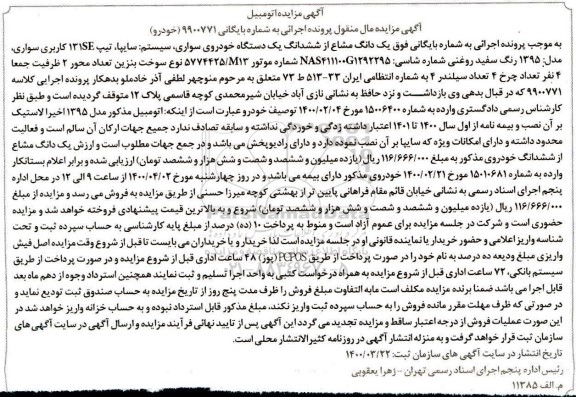 آگهی مزایده اتومبیل
آگهی مزایده مال منقول پرونده اجرائی به شماره بایگانی ۹۹۰۰۷۷۱ (خودرو)
به موجب پرونده اجرائی به شماره بایگانی فوق یک دانگ مشاع از ششدانگ یک دستگاه خودروی سواری، سیستم: سایپا، تیپ ۱۳۱SE کاربری سواری،
مدل: ۱۳۹۵ رنگ سفید روغنی شماره شاسی: NAS۴۱۱۱۰۰G۱۲۹۲۲۹۵ شماره موتور ۵۷۷۴۴۲۵/M۱۳ نوع سوخت بنزین تعداد محور ۲ ظرفیت جمعا
۴ نفر تعداد چرخ ۴ تعداد سیلندر ۴ به شماره انتظامی ایران ۳۳-۵۱۳ ط ۷۳ متعلق به مرحوم منوچهر لطفی آذر خادملو بدهکار پرونده اجرایی کلاسه
۹۹۰۰۷۷۱ که در قبال بدهی وی بازداشت و نزد حافظ به نشانی نازی آباد خیابان شیرمحمدی کوچه قاسمی پلاک ۱۲ متوقف گردیده است و طبق نظر
کارشناس رسمی دادگستری وارده به شماره ۱۵۰۰۶۴۰۰ مورخ ۱۴۰۰/۰۲/۰۴ توصیف خودرو عبارت است از اینکه: اتومبیل مذکور مدل ۱۳۹۵ اخیرا لاستیک
بر آن نصب و بیمه نامه از اول سال ۱۴۰۰ تا ۱۴۰۱ اعتبار داشته زدگی و خوردگی نداشته و سابقه تصادف ندارد جمیع جهات ارکان آن سالم است و فعالیت
محدود داشته و دارای امکانات ویژه که سایپا بر آن نصب نموده دارد و دارای رادیوپخش می باشد و در جمع جهات مطلوب است و ارزش یک دانگ مشاع
از ششدانگ خودروی مذکور به مبلغ ۱۱۶/۶۶۶/۰۰۰ ریال (یازده میلیون و ششصد و شصت و شش هزار و ششصد تومان) ارزیابی شده و برابر اعلام بستانکار
وارده به شماره ۱۵۰۱۰۶۸۱ مورخ ۱۴۰۰/۰۲/۲۱ خودروی مذکور دارای بیمه می باشد و در روز چهارشنبه مورخ ۱۴۰۰/۰۴/۰۲ از ساعت ۹ الی ۱۲ در محل اداره
پنجم اجرای اسناد رسمی به نشانی خیابان قائم مقام فراهانی پایین تر از بهشتی کوچه میرزا حسنی از طریق مزایده به فروش می رسد و مزایده از مبلغ
۱۱۶/۶۶۶/۰۰۰ ریال (یازده میلیون و ششصد و شصت و شش هزار و ششصد تومان) شروع و به بالاترین قیمت پیشنهادی فروخته خواهد شد و مزایده
حضوری است و شرکت در جلسه مزایده برای عموم آزاد است و منوط به پرداخت ۱۰ (ده) درصد از مبلغ پایه کارشناسی به حساب سپرده ثبت و تحت
شناسه واریز اعلامی و حضور خریدار یا نماینده قانونی او در جلسه مزایده است لذا خریدار و یا خریداران می بایست تا قبل از شروع وقت مزایده اصل فیش
واریزی مبلغ ودیعه ده درصد به نام خود را در صورت پرداخت از طریق PCPOS (پوز) ۴۸ ساعت اداری قبل از شروع مزایده و در صورت پرداخت از طریق
سیستم بانکی، ۷۲ ساعت اداری قبل از شروع مزایده به همراه درخواست کتبی به واحد اجرا تسلیم و ثبت نمایند همچنین استرداد وجوه از دهم ماه بعد
قابل اجرا می باشد ضمنا برنده مزایده مکلف است مابه التفاوت مبلغ فروش را ظرف مدت پنج روز از تاریخ مزایده به حساب صندوق ثبت تودیع نماید و
در صورتی که ظرف مهلت مقرر مانده فروش را به حساب سپرده ثبت واریز نکند، مبلغ مذکور قابل استرداد نبوده و به حساب خزانه واریز خواهد شد در
این صورت عملیات فروش از درجه اعتبار ساقط و مزایده تجدید می گردد این آگهی پس از تایید نهائی فرآیند مزایده و ارسال آگهی در سایت آگهی های
سازمان ثبت قرار خواهد گرفت و به منزله انتشار آگهی در روزنامه کثیرالانتشار محلی است.
تاریخ انتشار در سایت آگهی های سازمان ثبت: ۱۴۰۰/۰۳/۲۲
رئیس اداره پنجم اجرای اسناد رسمی تهران - زهرا یعقوبی
م. الف ۱۱۳۸۵